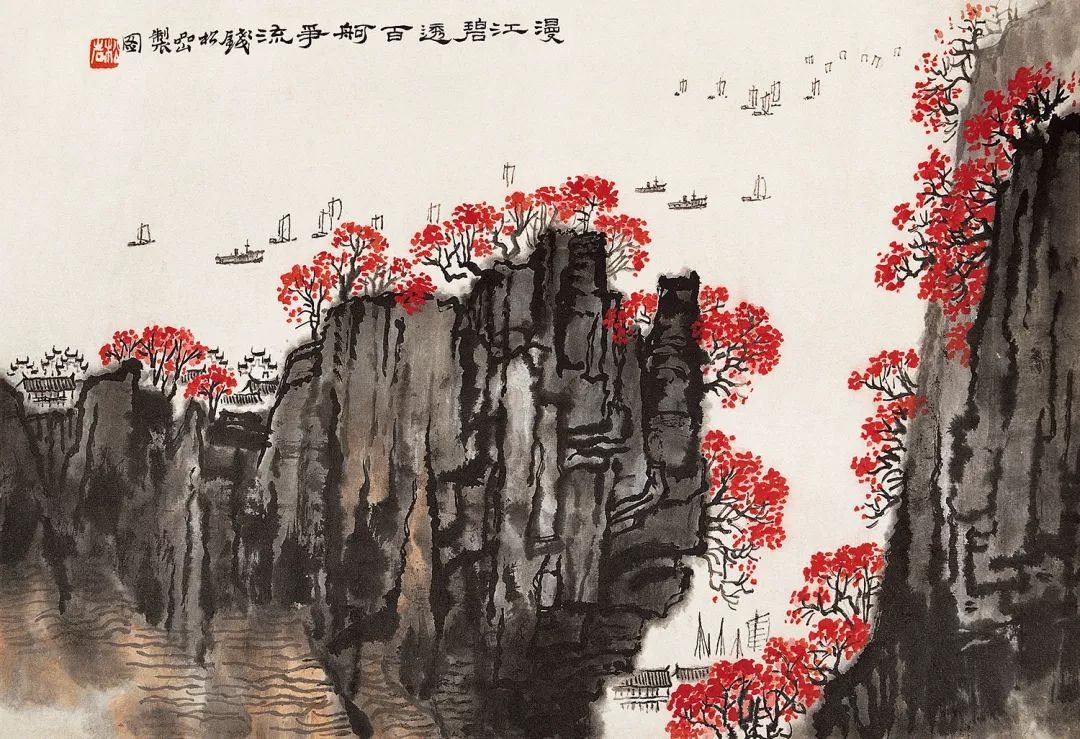 漫江碧透百舸爭流錢松嵒製圖
松岩